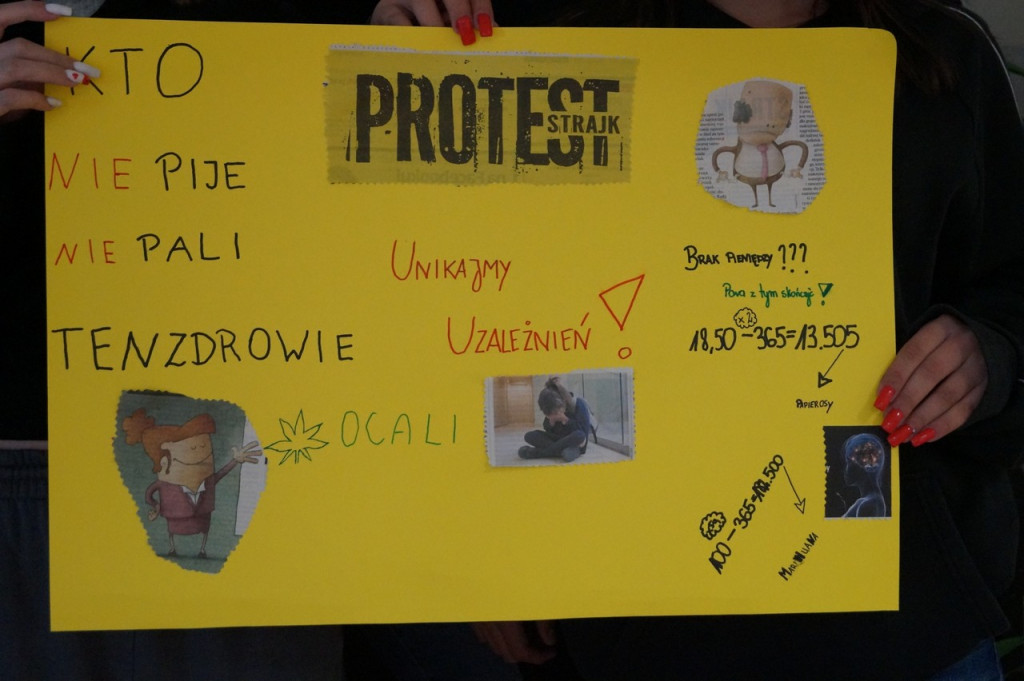 KTO
NIE PIJE
NIE PALI
TEN ZDROWIE
OCALI
PROTEST
STRAJK
UNIKAJMY
UZALEŻNIEŃ!
BRAK PIENIĘDZY???
Pora z tym skończyć!
x2
18,50-365=13.505
PAPIEROSY
100-365=
MARIHUANA